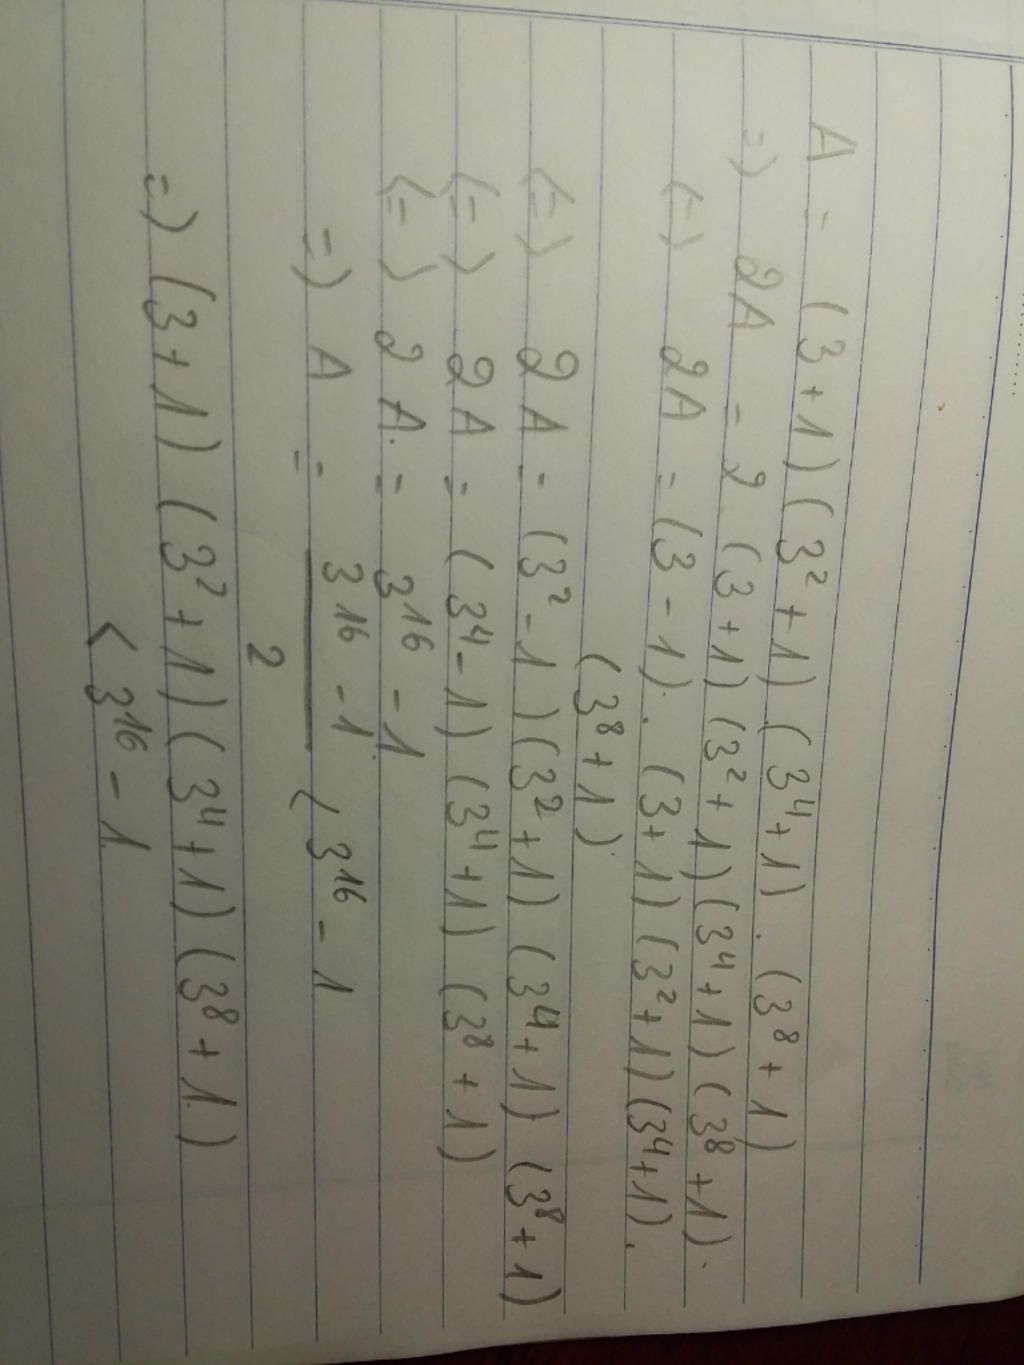 A = (3+1)(3²+1)(3⁴+1).(3⁸+1)
=) 2A = 2(3+1)(3²+1)(3⁴+1)(3⁸+1).
(=) 2A = (3-1).(3+1)(3²+1)(3⁴+1).
(3⁸+1)
(=) 2A = (3²-1)(3²+1)(3⁴+1)(3⁸+1)
(=) 2A = (3⁴-1)(3⁴+1)(3⁸+1)
(=) 2A = 3¹⁶-1
=) A = 3¹⁶-1 < 3¹⁶-1
2
=) (3+1)(3²+1)(3⁴+1)(3⁸+1)
< 3¹⁶-1